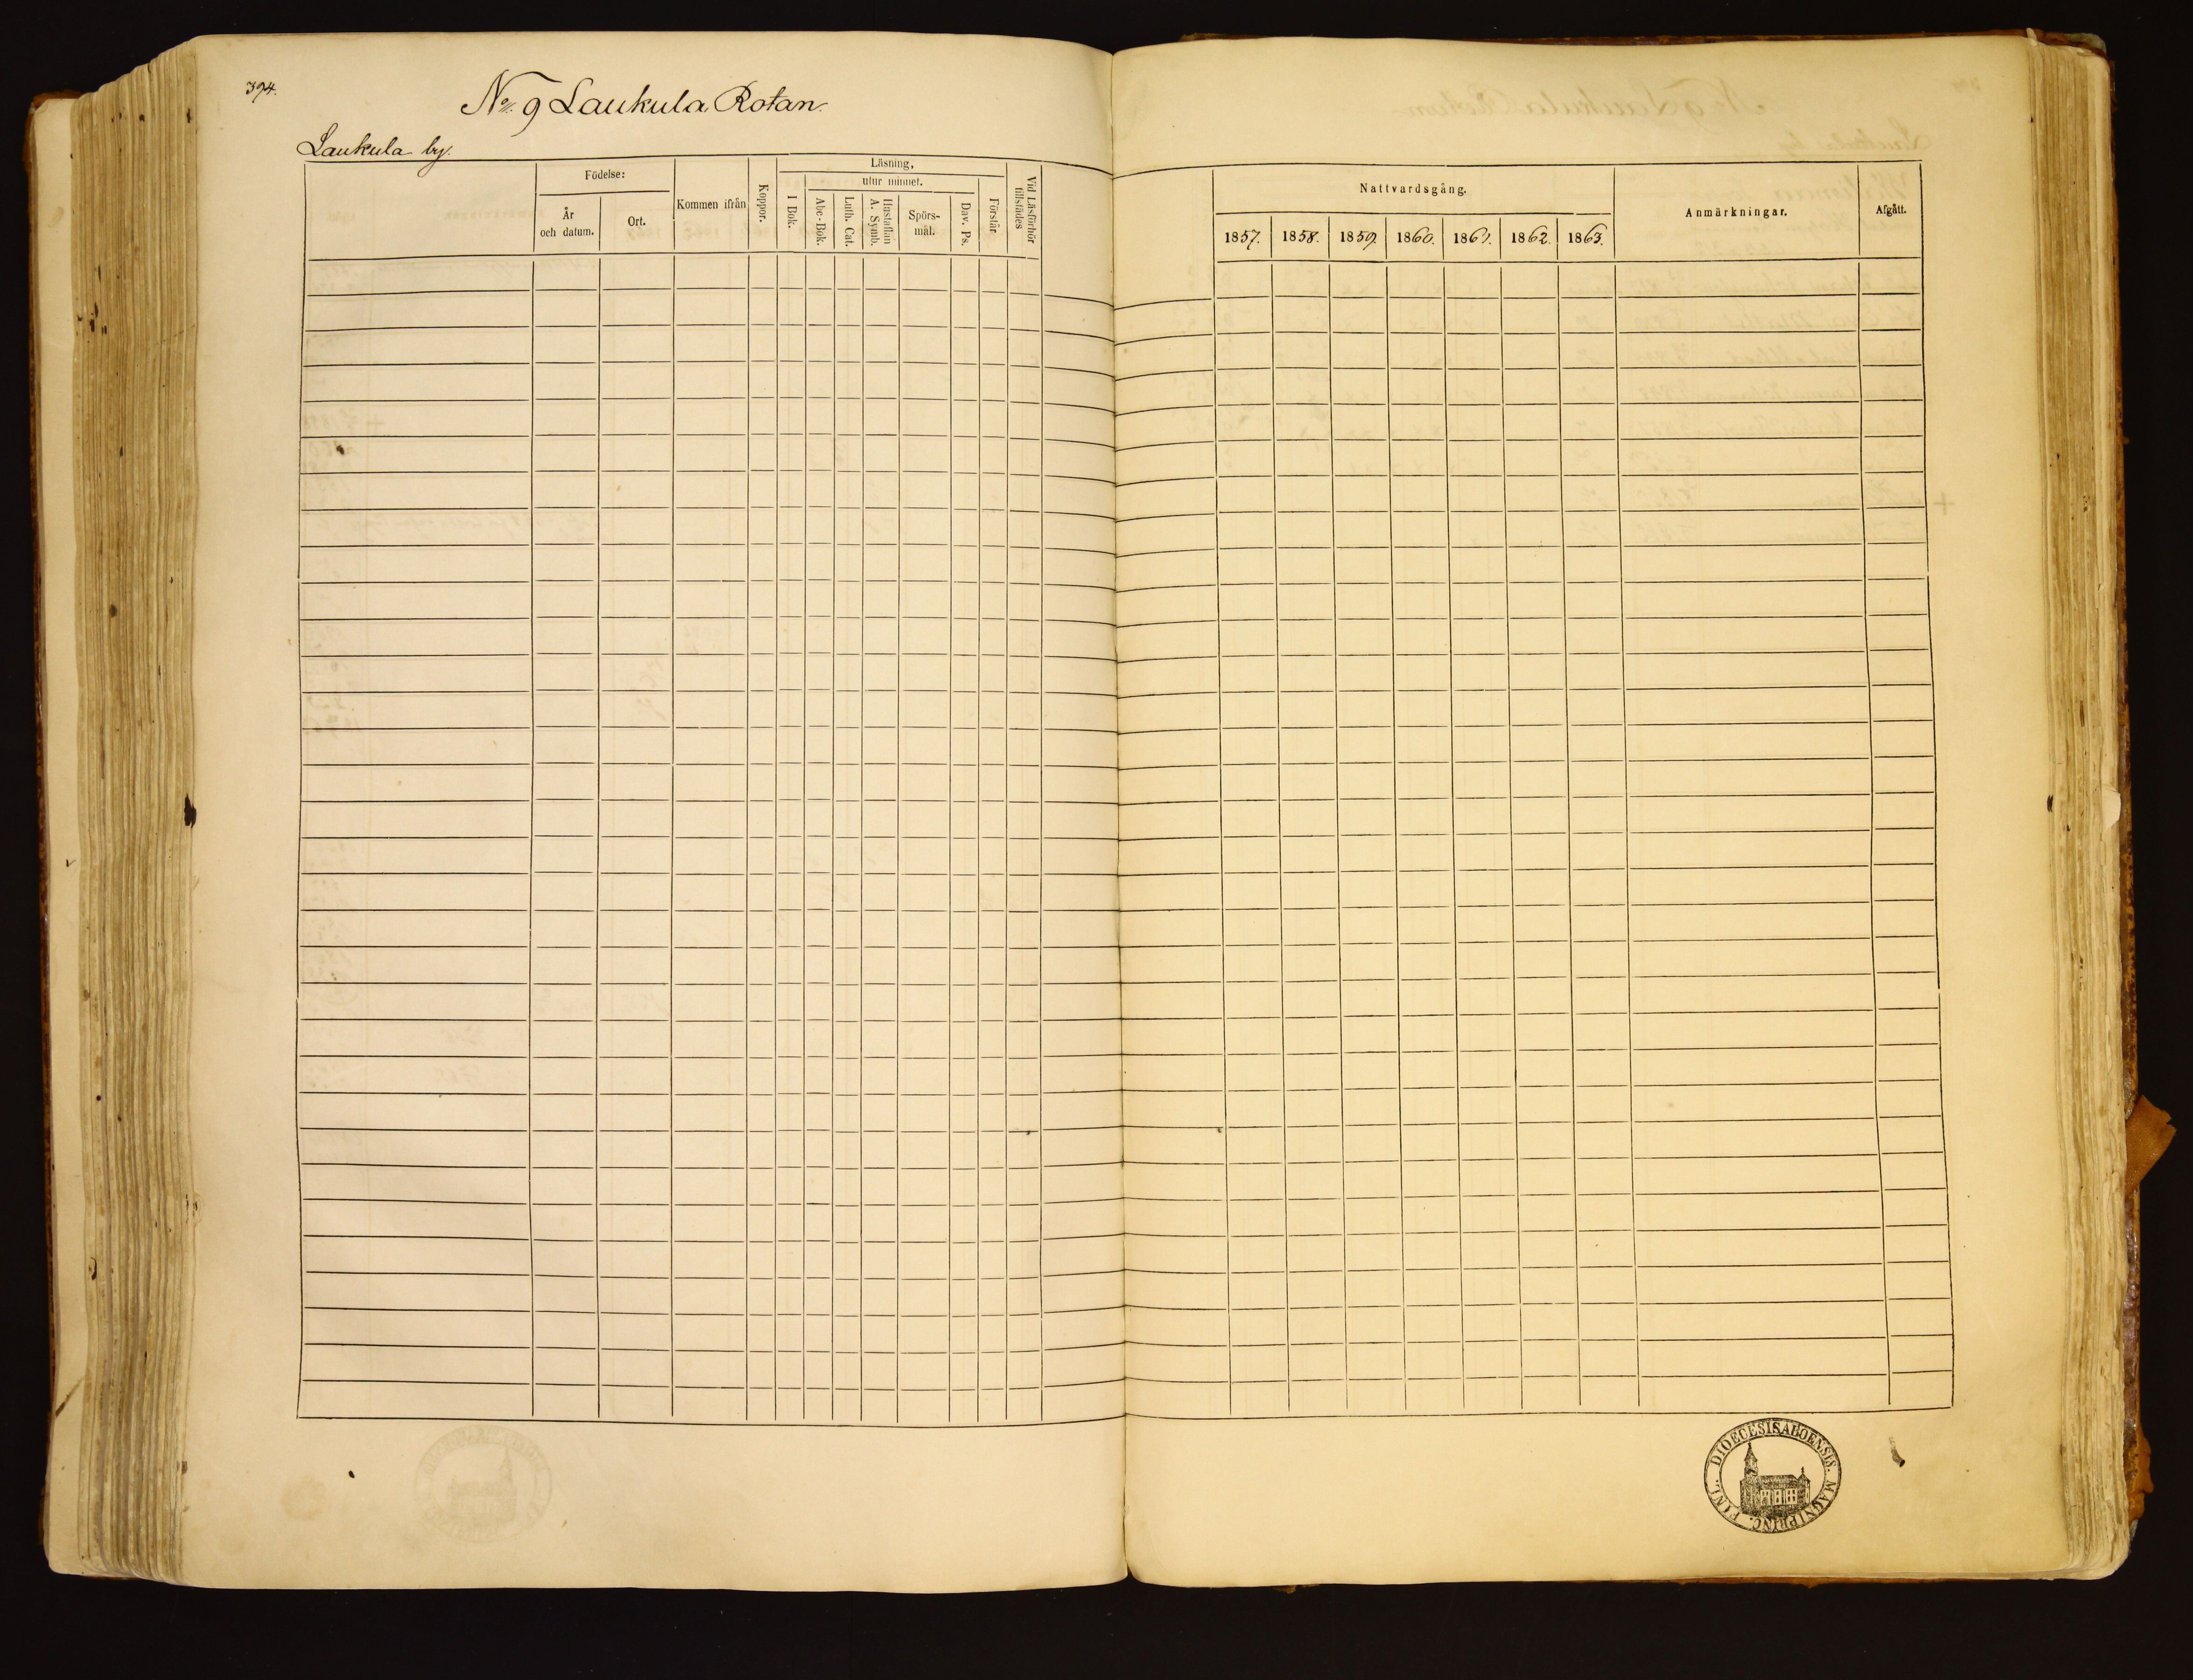 394.
No. 9 Laukula Rotan.
Laukula by.
Födelse:
År och datum.
Ort.
Kommen ifrån
Koppor.
Läsning,
I Bok.
utur minnet.
Abc-Bok.
Luth. Cat.
Hustaflan A. Symb.
Spörs-mål.
Dav. Ps.
Förstår.
Vid Läsförhör tillstädes
Nattvardsgång.
1857. 1858. 1859. 1860. 1861. 1862. 1863.
Anmärkningar.
Afgått.
DIOECESIS ABOENSIS. MAGNI PRINC. FINL.